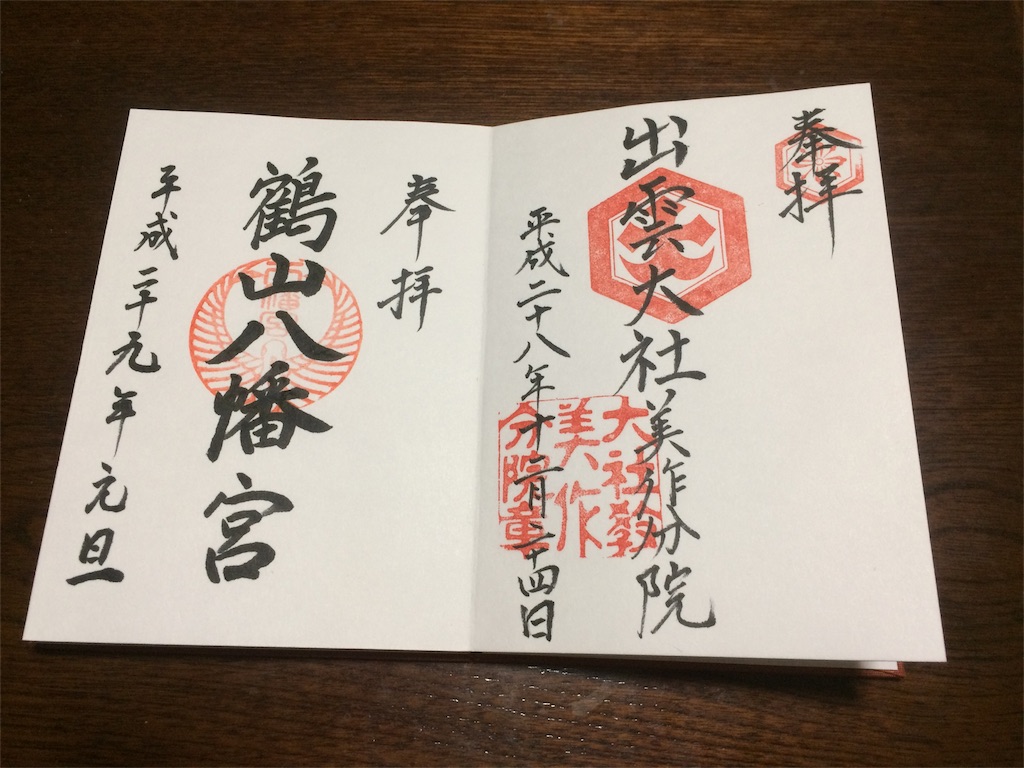 奉拝
出雲大社美作分院
大社教
美作
分院章
平成二十八年十二月二十四日
奉拝
鶴山八幡宮
八幡宮
平成二十九年元旦